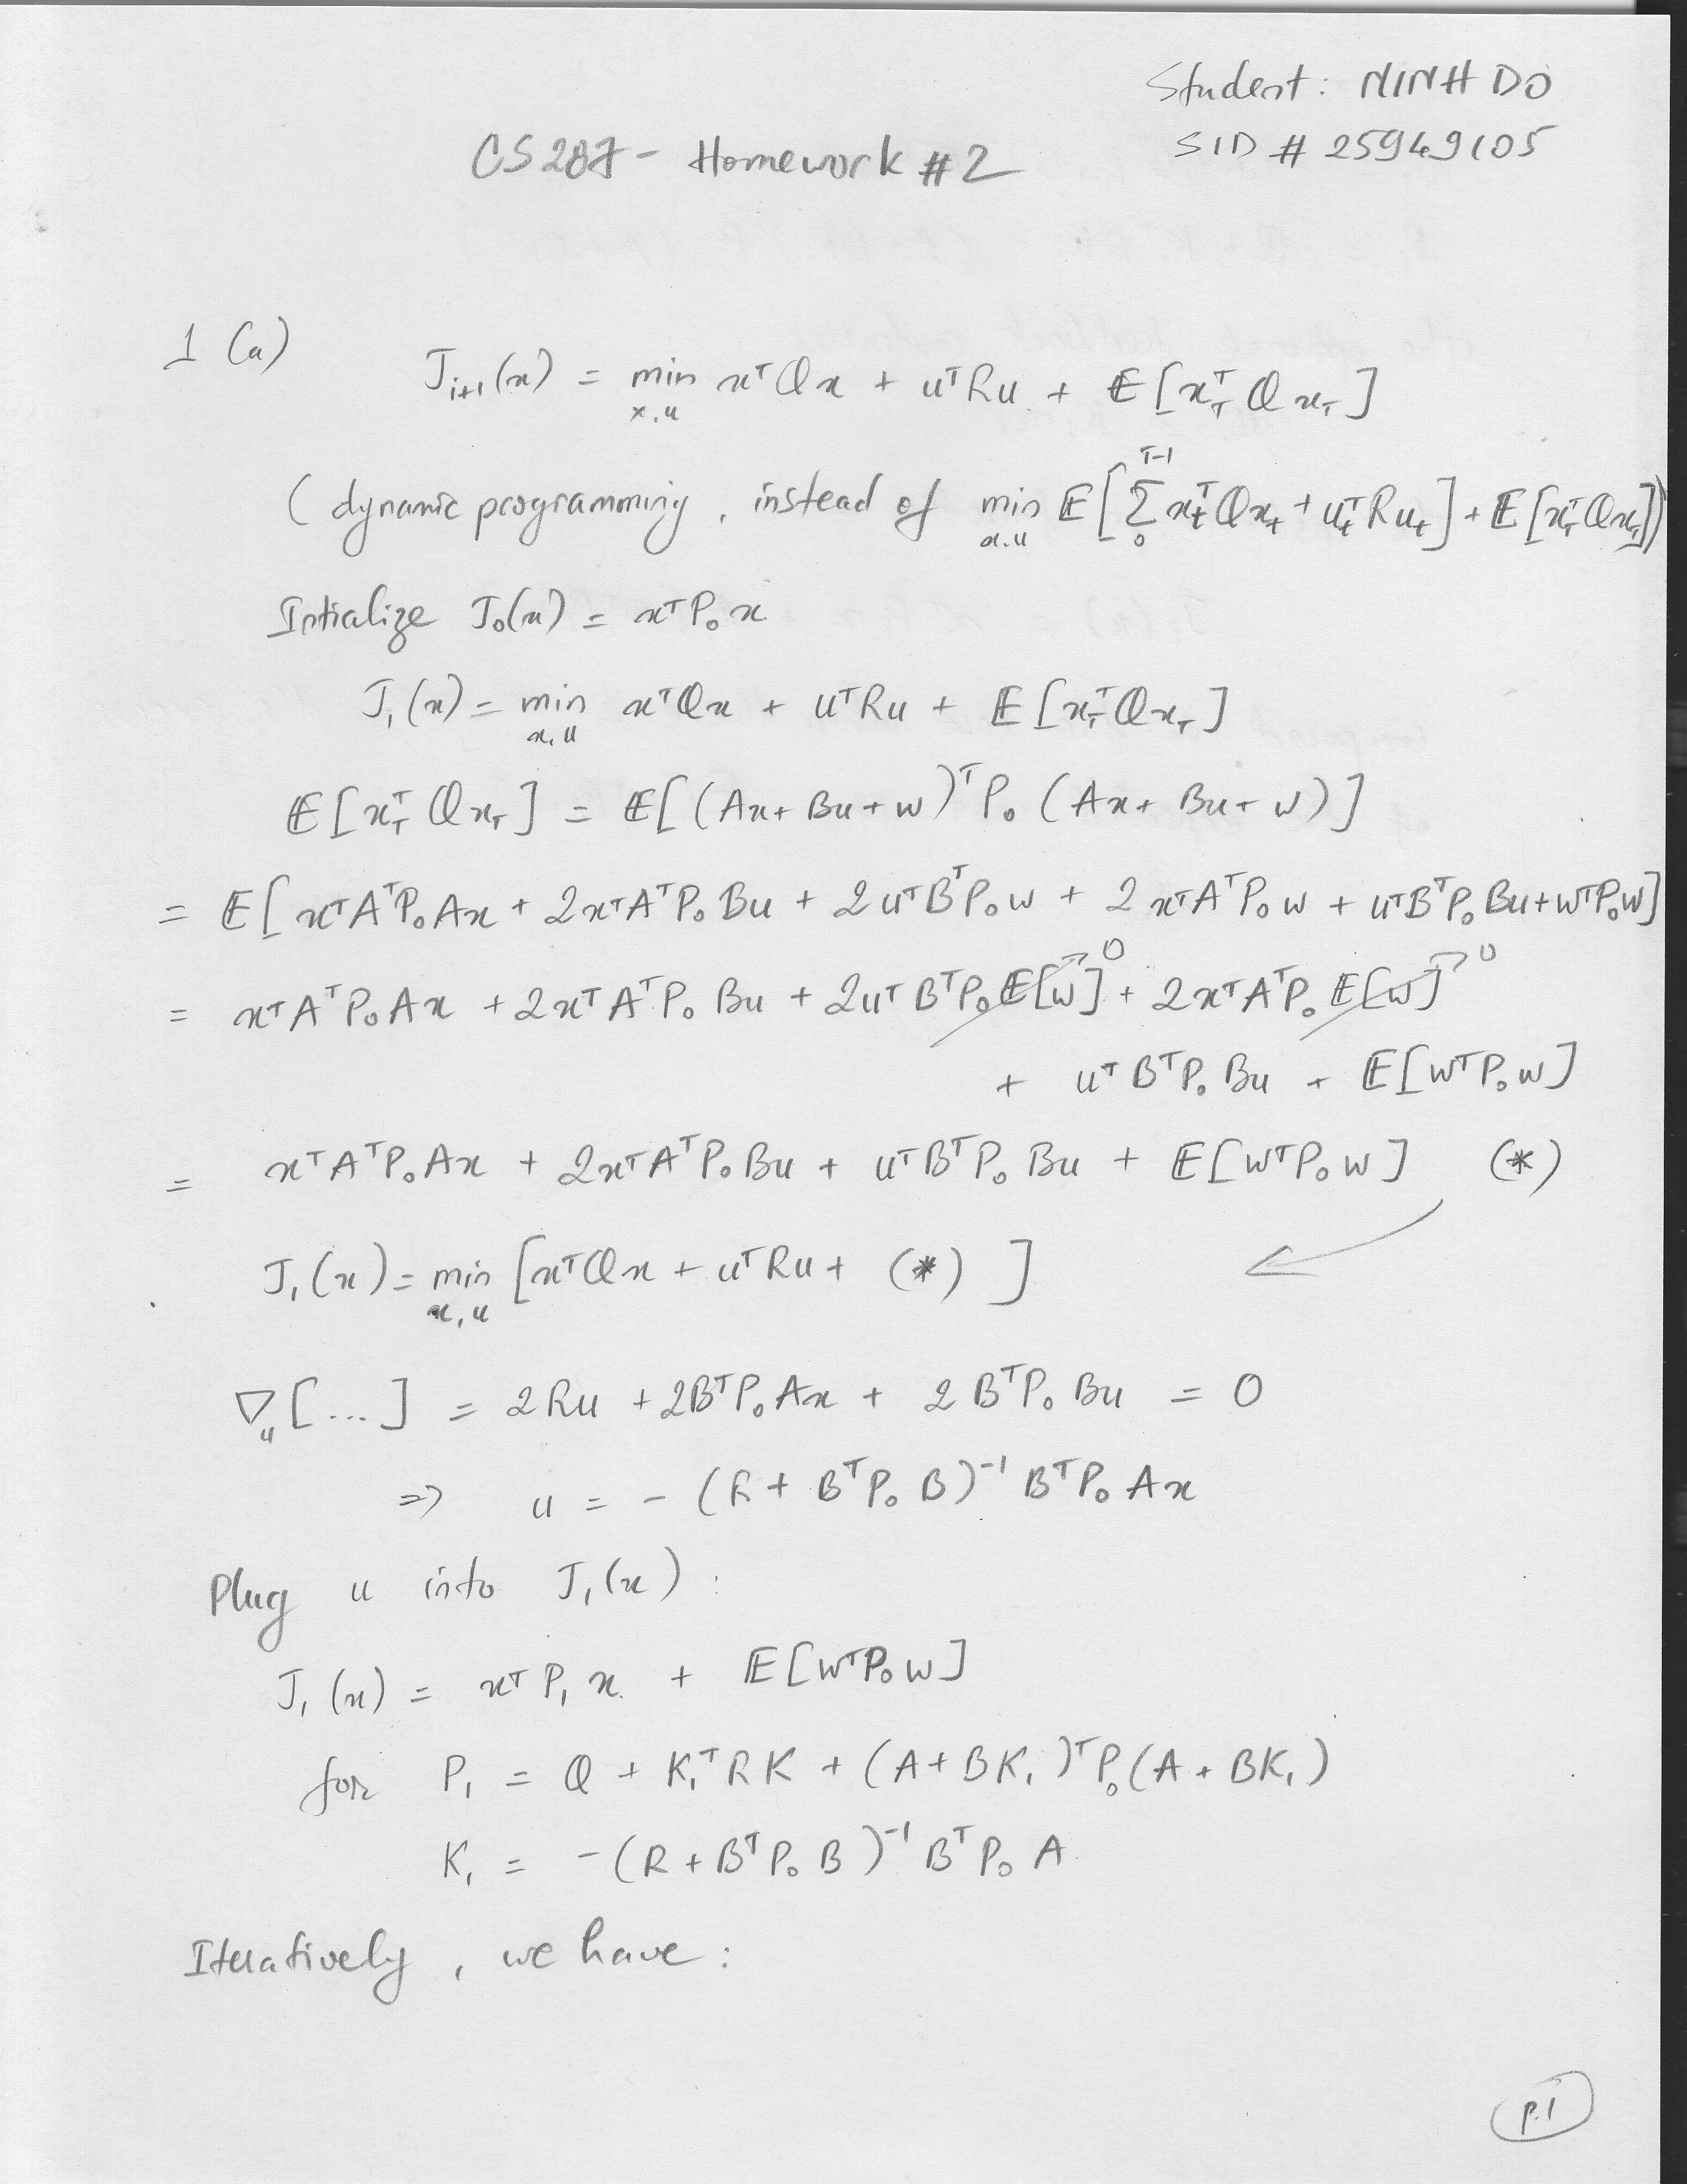 Student: NINH DO
SID # 25949105
CS287 - Homework #2
1 (a) J_{i+1}(x) = min_{x,u} x^T Q x + u^T R u + E[x_T^T Q x_T]
(dynamic programming, instead of min_{x,u} E[Σ_0^{T-1} x_t^T Q x_t + u_t^T R u_t] + E[x_T^T Q x_T])
Intialize J_0(x) = x^T P_0 x
J_1(x) = min_{x,u} x^T Q x + u^T R u + E[x_T^T Q x_T]
E[x_T^T Q x_T] = E[(Ax + Bu + w)^T P_0 (Ax + Bu + w)]
= E[x^T A^T P_0 A x + 2x^T A^T P_0 B u + 2u^T B^T P_0 w + 2x^T A^T P_0 w + u^T B^T P_0 B u + w^T P_0 w]
= x^T A^T P_0 A x + 2x^T A^T P_0 B u + 2u^T B^T P_0 E[w]→0 + 2x^T A^T P_0 E[w]→0
+ u^T B^T P_0 B u + E[w^T P_0 w]
= x^T A^T P_0 A x + 2x^T A^T P_0 B u + u^T B^T P_0 B u + E[w^T P_0 w] (*)
J_1(x) = min_{x,u} [x^T Q x + u^T R u + (*) ]
∇_u [...] = 2Ru + 2B^T P_0 A x + 2B^T P_0 B u = 0
=> u = - (R + B^T P_0 B)^{-1} B^T P_0 A x
Plug u into J_1(x) :
J_1(x) = x^T P_1 x + E[w^T P_0 w]
for P_1 = Q + K_1^T R K + (A + BK_1)^T P_0 (A + BK_1)
K_1 = -(R + B^T P_0 B)^{-1} B^T P_0 A
Iteratively, we have :
p.1